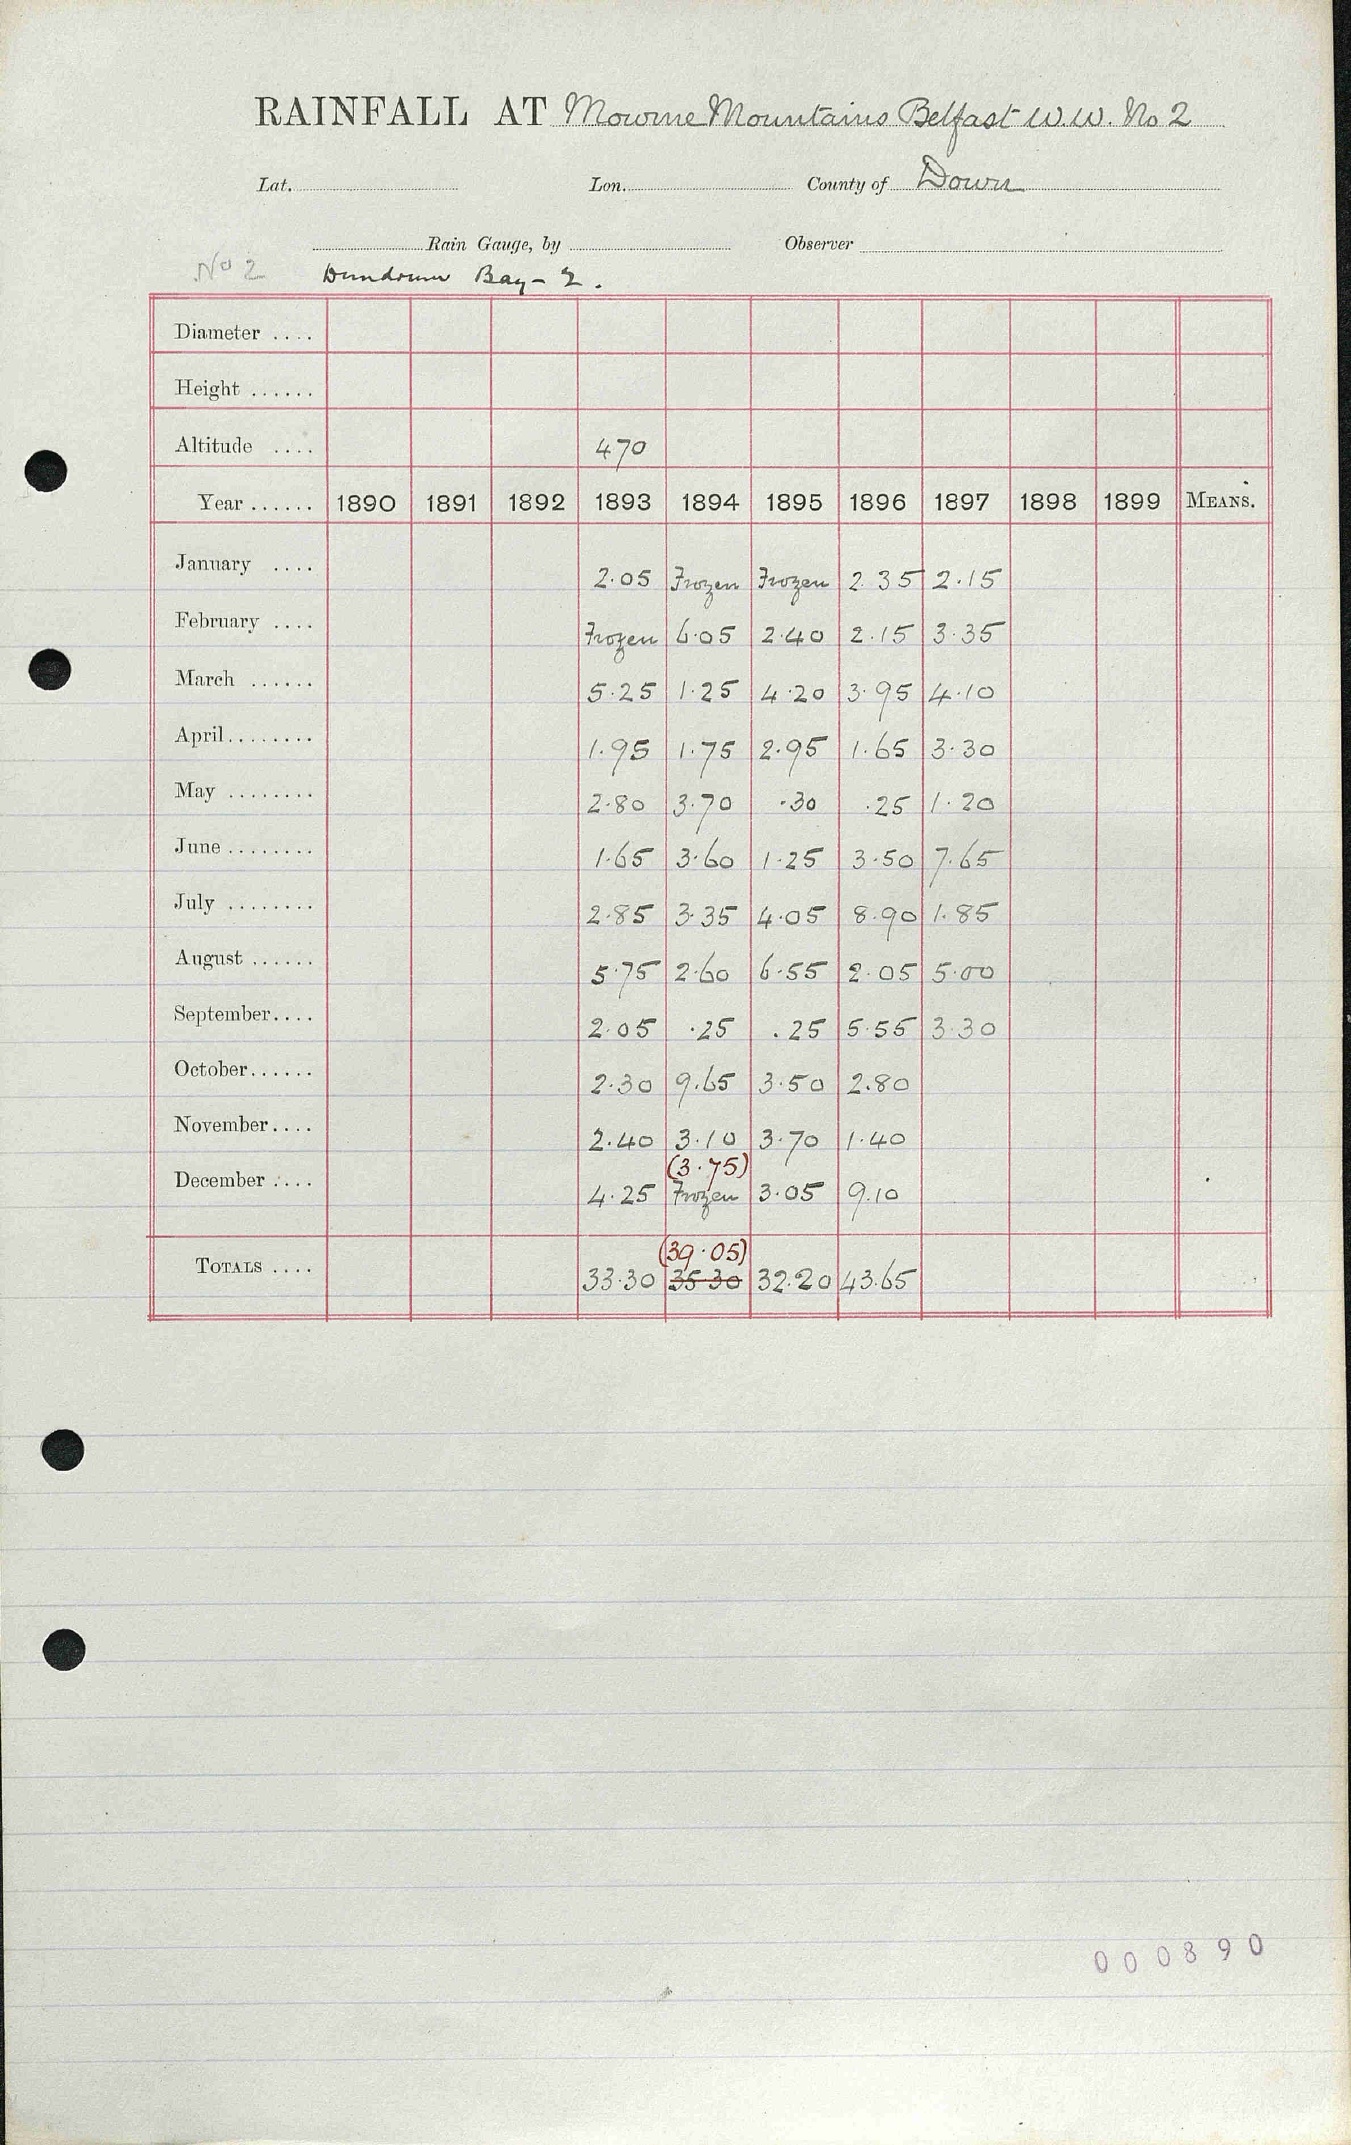 RAINFALL AT Mourne Mountains Belfast W.W. No 2
Lat. Lon. County of Down
Rain Gauge, by Observer
No 2 Dundrum Bay - 2.
Diameter ....
Height ......
Altitude .... 470
Year ...... 1890 1891 1892 1893 1894 1895 1896 1897 1898 1899 MEANS.
January .... 2.05 Frozen Frozen 2.35 2.15
February .... Frozen 6.05 2.40 2.15 3.35
March ...... 5.25 1.25 4.20 3.95 4.10
April........ 1.95 1.75 2.95 1.65 3.30
May ........ 2.80 3.70 .30 .25 1.20
June ........ 1.65 3.60 1.25 3.50 7.65
July ........ 2.85 3.35 4.05 8.90 1.85
August ...... 5.75 2.60 6.55 2.05 5.00
September.... 2.05 .25 .25 5.55 3.30
October...... 2.30 9.65 3.50 2.80
November.... 2.40 3.10 3.70 1.40
(3.75)
December .... 4.25 Frozen 3.05 9.10
(39.05)
TOTALS .... 33.30 35.30 32.20 43.65
000890